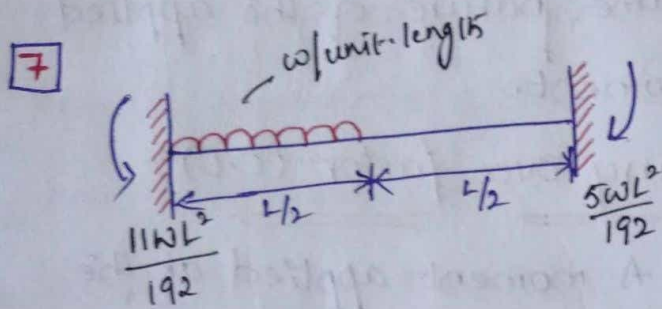 7
w/unit.length
L/2
L/2
11WL²
192
5WL²
192